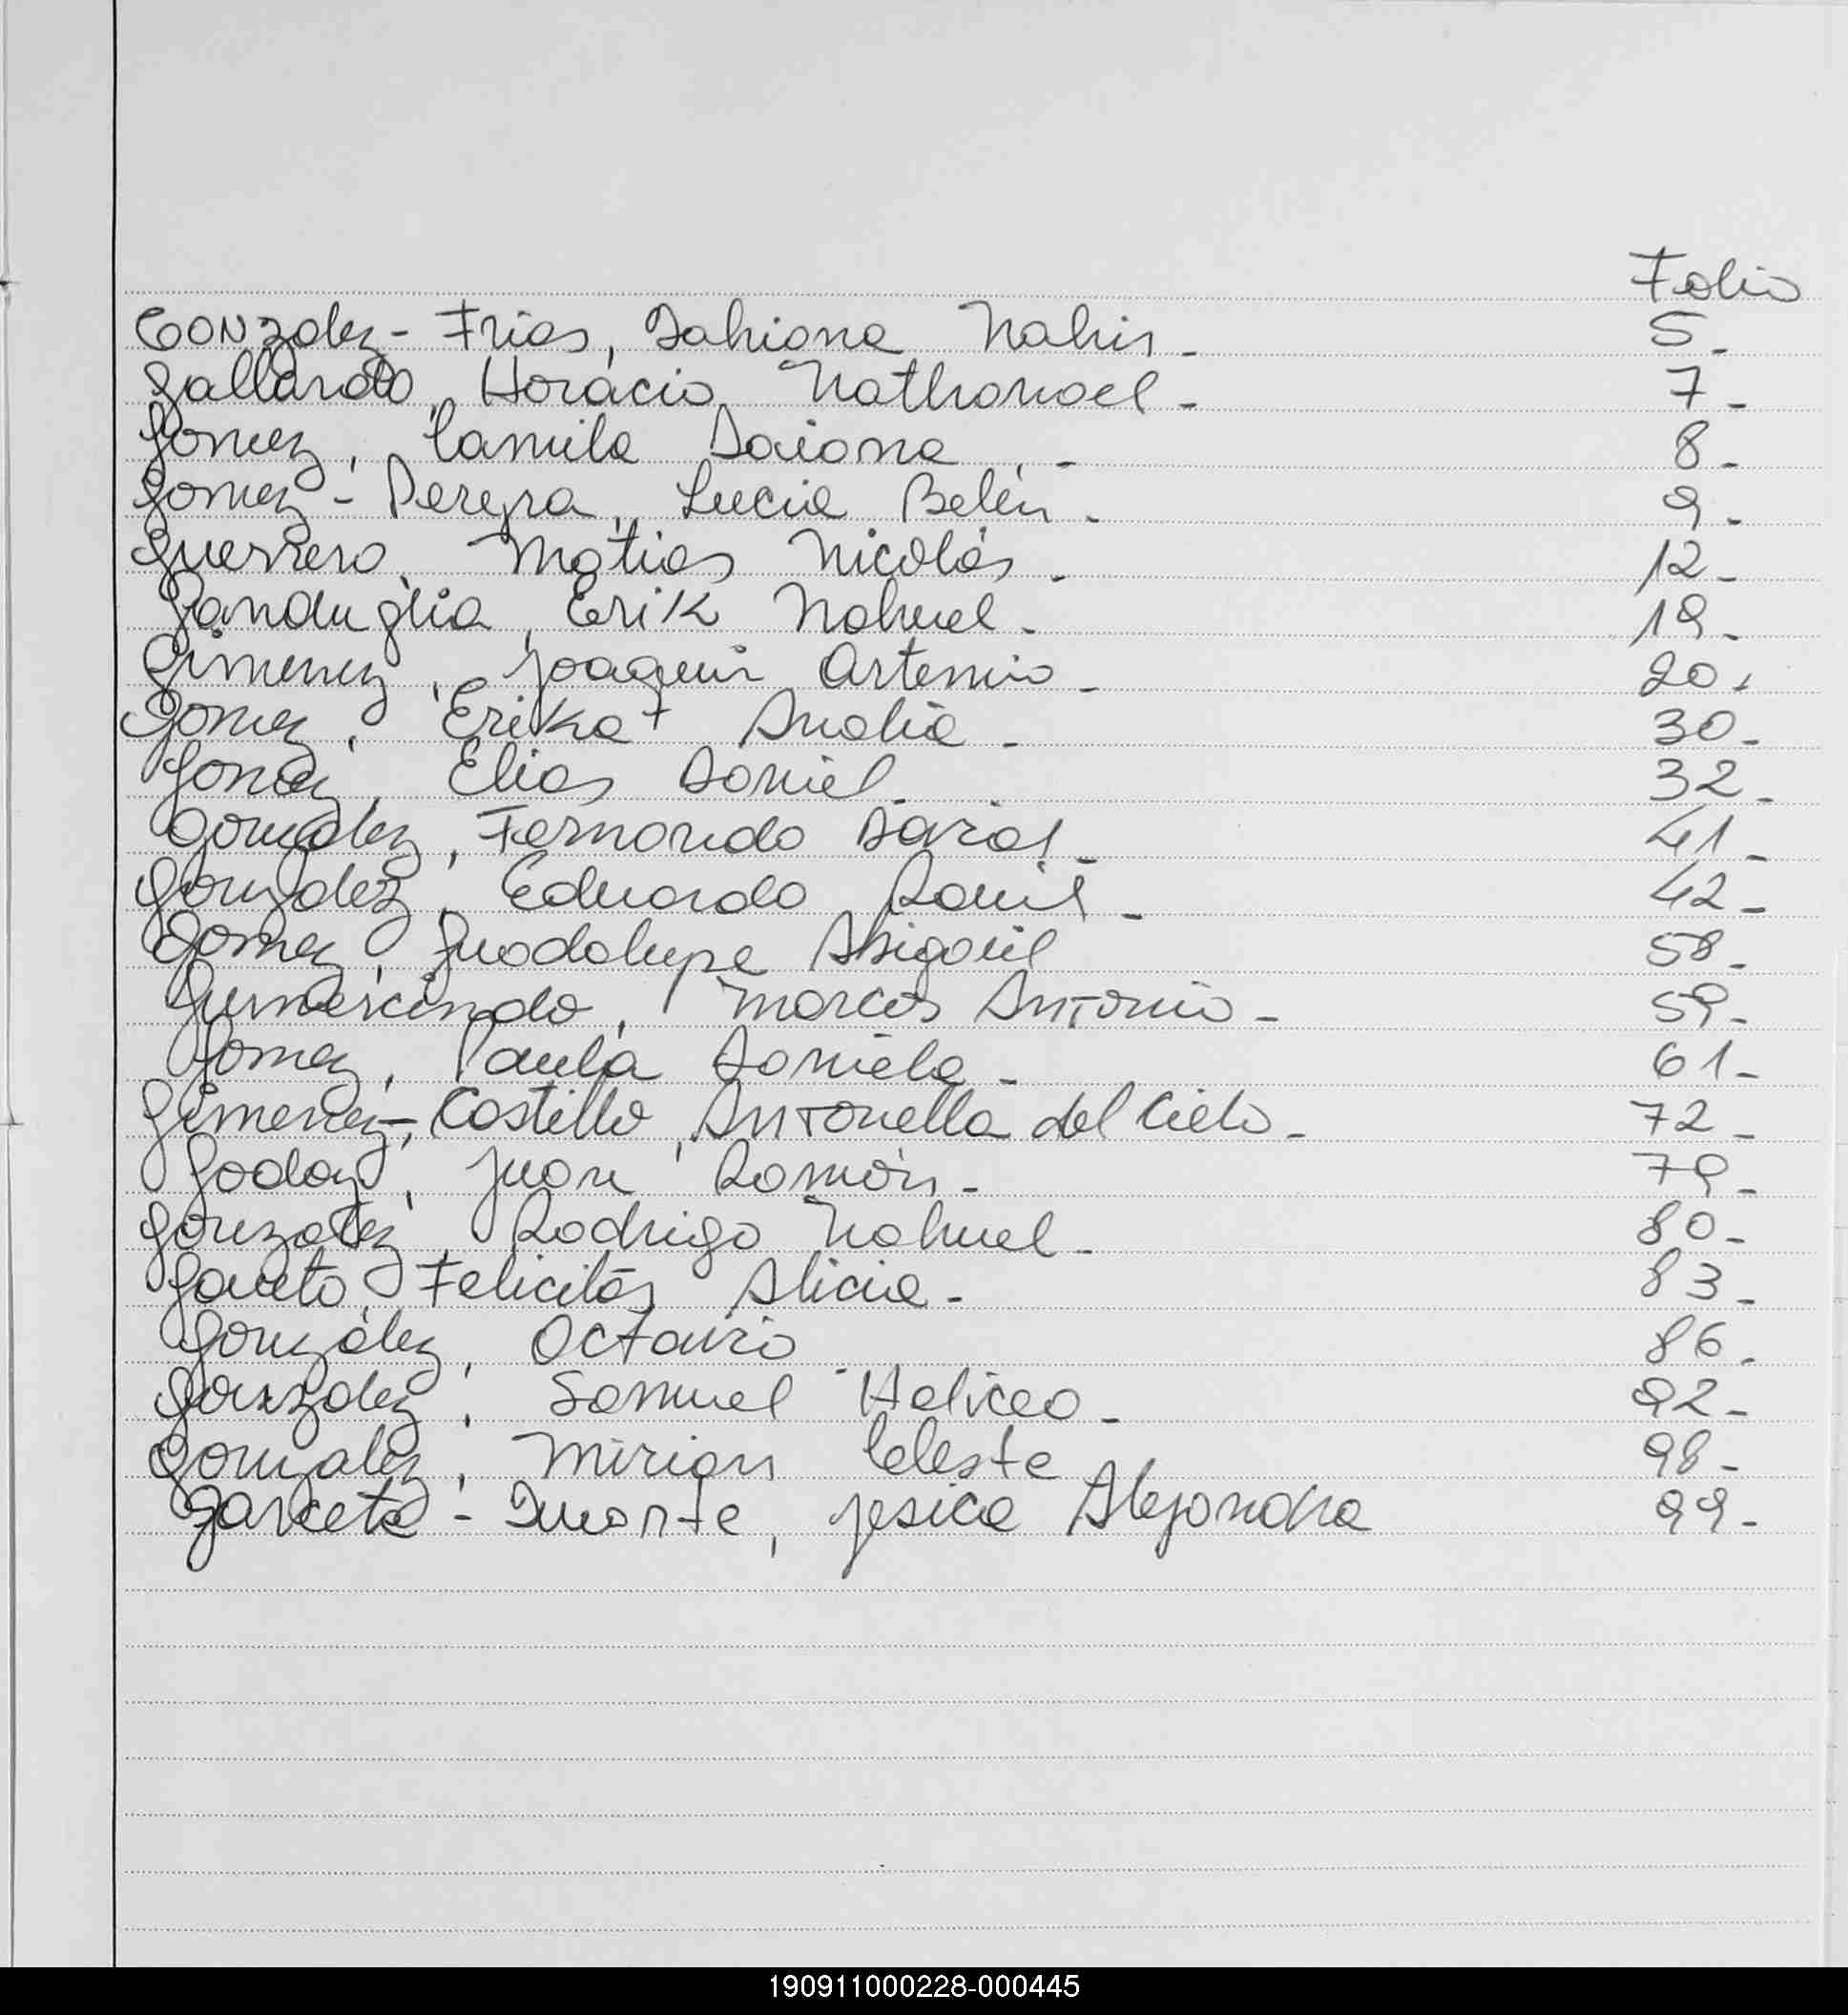 Folio
Gonzalez - Frias, Dahiana Nahir - 5 -
Gallardo, Horacio Nathanael - 7 -
Gomez, Camila Daiana - 8 -
Gomez - Pereyra, Lucia Belén - 9 -
Guerrero, Matias Nicolás - 12 -
Ganduglia, Erik Nahuel - 19 -
Gimenez, Joaquin Artemio - 20 -
Gomez, Erika Analia - 30 -
Gomez, Elias Daniel - 32 -
Gonzalez, Fernando David - 41 -
Gonzalez, Eduardo 42 -
Gomez, Guadalupe Abigail 58 -
Gumercindo, Marcos Antonio - 59 -
Gomez, Paula Daniela - 61 -
Gimenez -, Castillo, Antonella del Cielo - 72 -
Godoy, Juan Ramón - 79 -
Gonzalez, Rodrigo Nahuel - 80 -
Felicitás Alicia - 83 -
González, Octavio 86 -
Gonzalez, Samuel Heliceo - 92 -
Gonzalez, Mirian Celeste 98 -
Garcete - Duarte, Jesica Alejandra 99 -
190911000228-000445